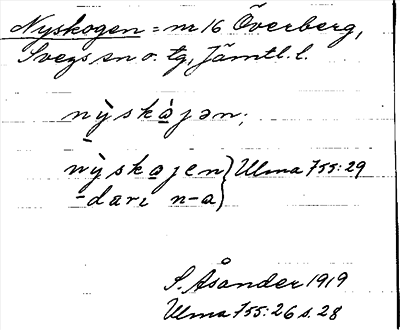 Nyskogen = nr 16 Överberg,
Svegs sn o. tg, Jämtl. l.
nỳskå̀jən;
nỳskajen } Ulma 755:29
-darı n-a
S. Åsånder 1919
Ulma 755:26 s. 28